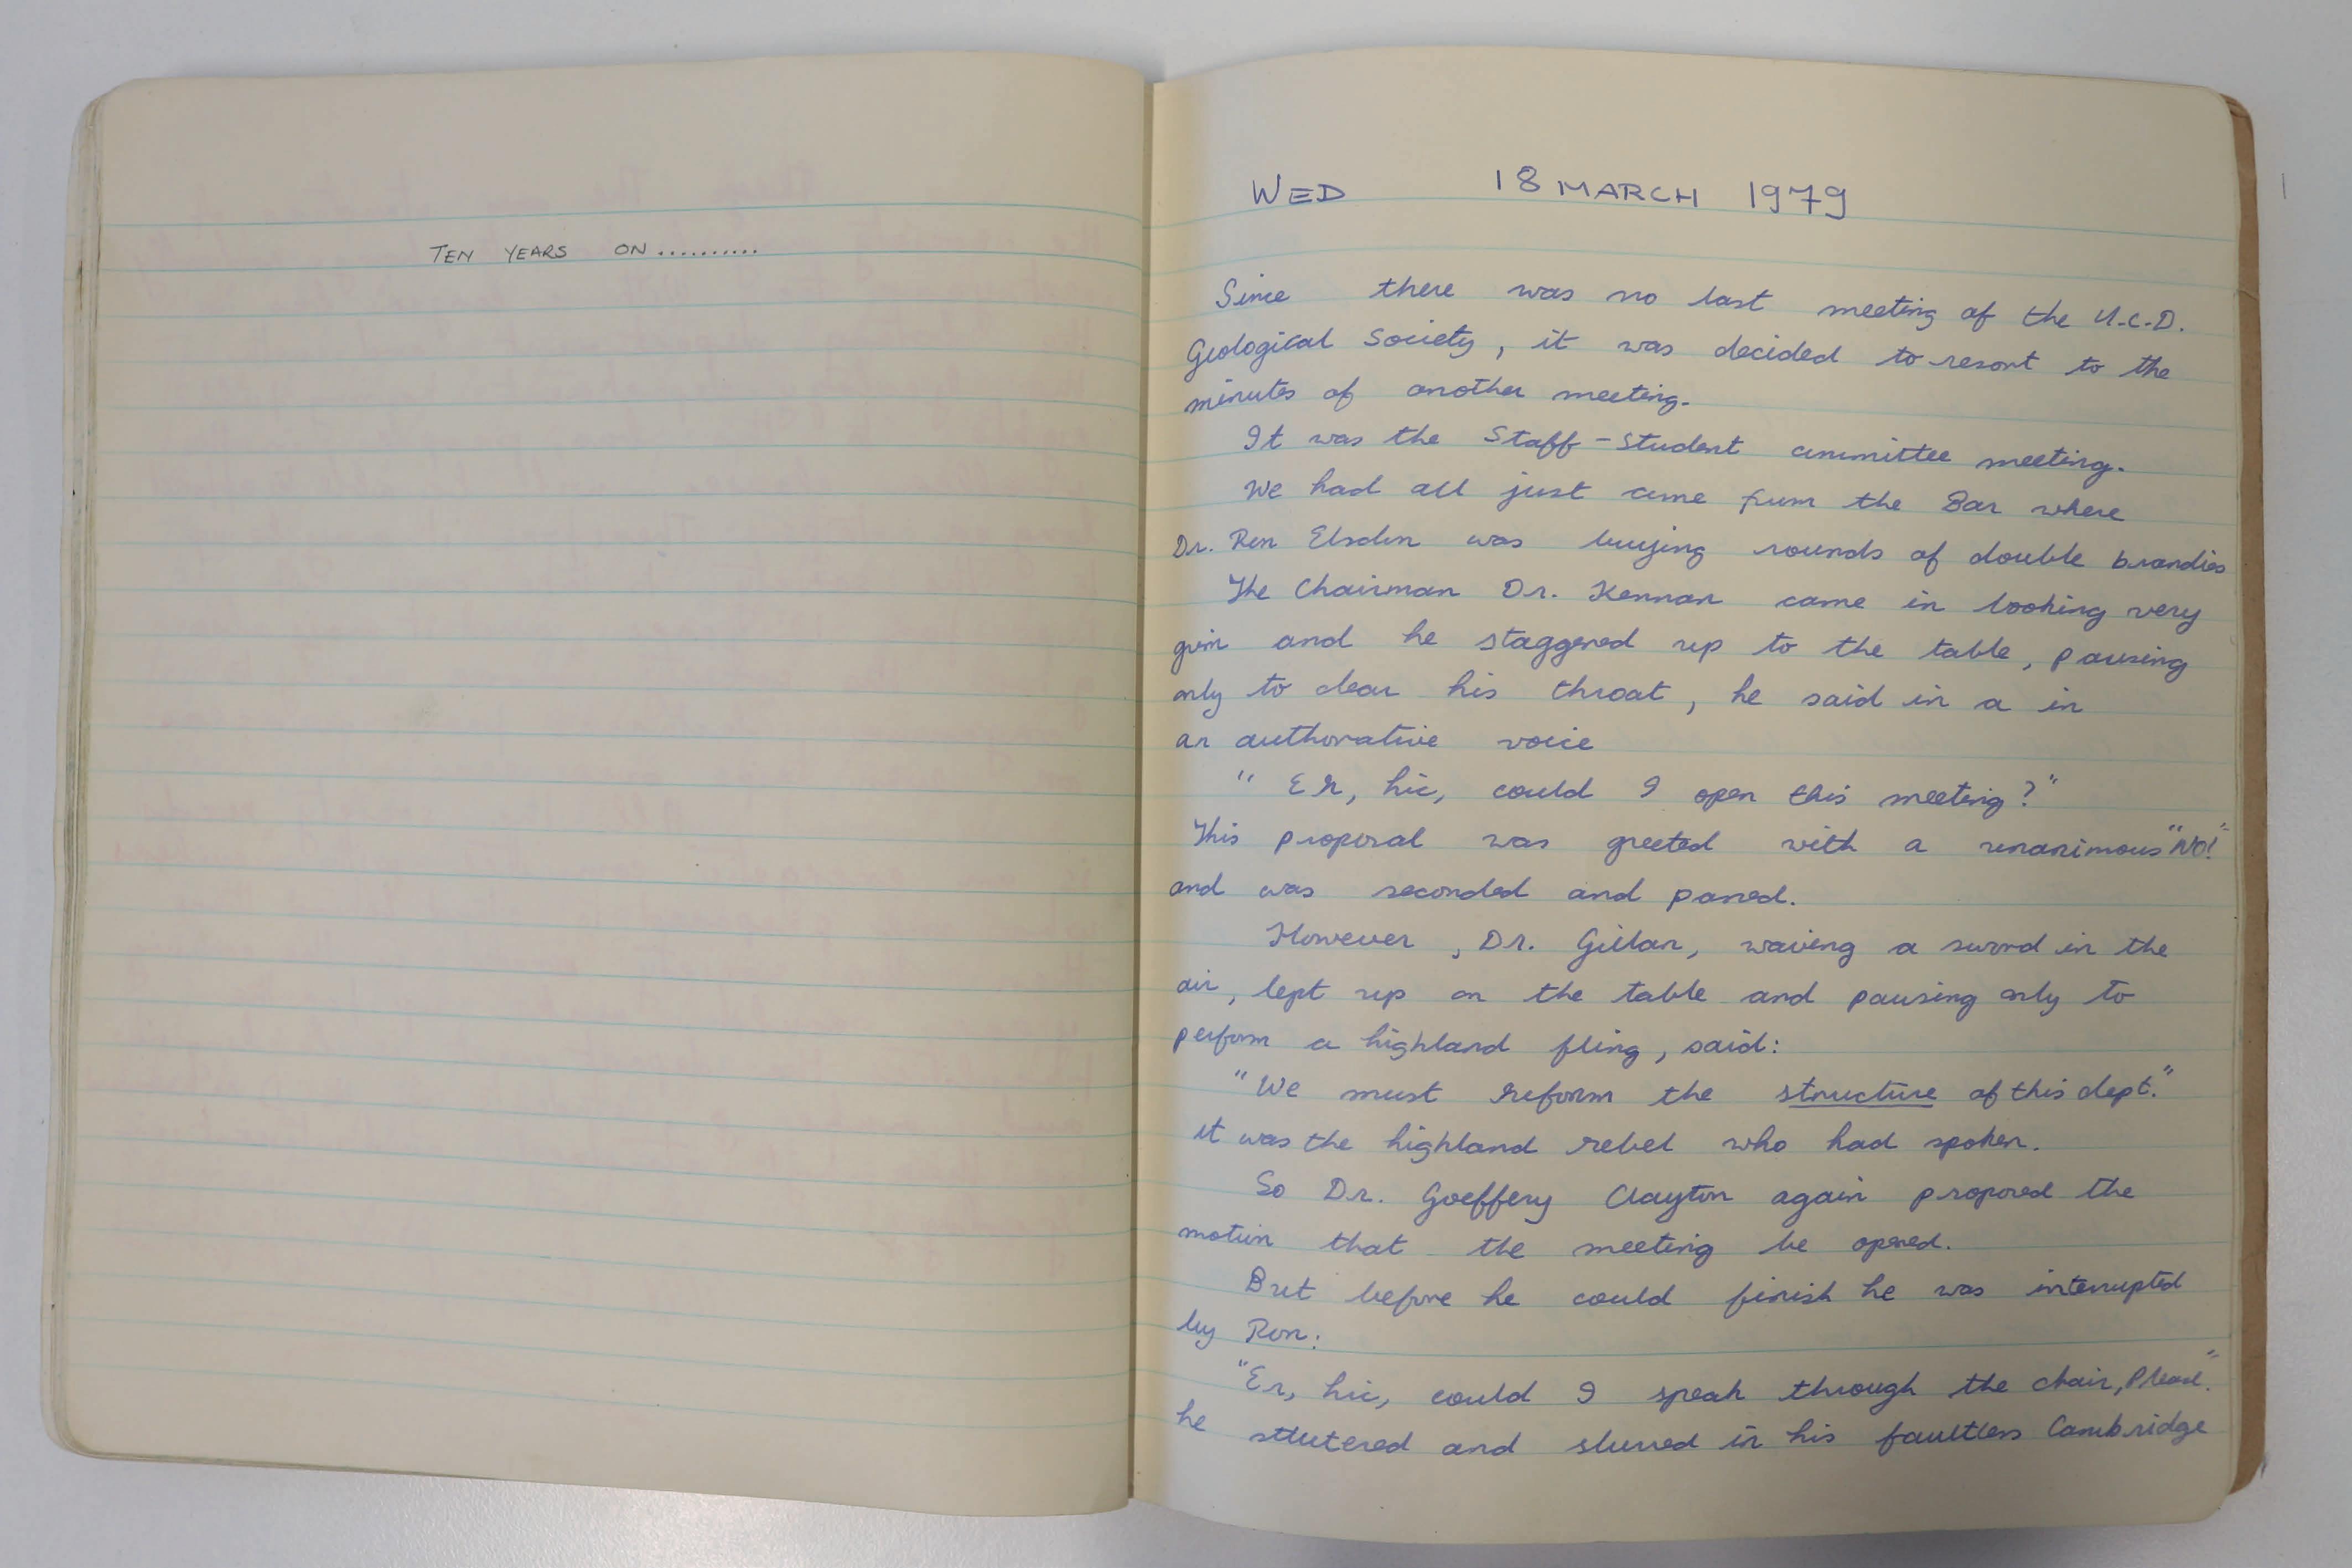 TEN YEARS ON ..........
WED 18 MARCH 1979
Since there was no last meeting of the U.C.D.
Geological Society, it was decided to resort to the
minutes of another meeting.
It was the Staff-Student committee meeting.
We had all just come from the Bar where
Dr. Ron Elsdon was buying rounds of double brandies
The Chairman Dr. Kennan came in looking very
grim and he staggered up to the table, pausing
only to clear his throat, he said in a in
an authorative voice
" Er, hic, could I open this meeting?"
This proposal was greeted with a unanimous "NO!"
and was seconded and passed.
However, Dr. Gillan, waving a sword in the
air, lept up on the table and pausing only to
perform a highland fling, said:
"We must reform the structure of this dept."
it was the highland rebel who had spoken.
So Dr. Goeffery Clayton again proposed the
motion that the meeting be opened.
But before he could finish he was interrupted
by Ron:
"Er, hic, could I speak through the chair, Please".
he stutered and slurred in his faultless Cambridge